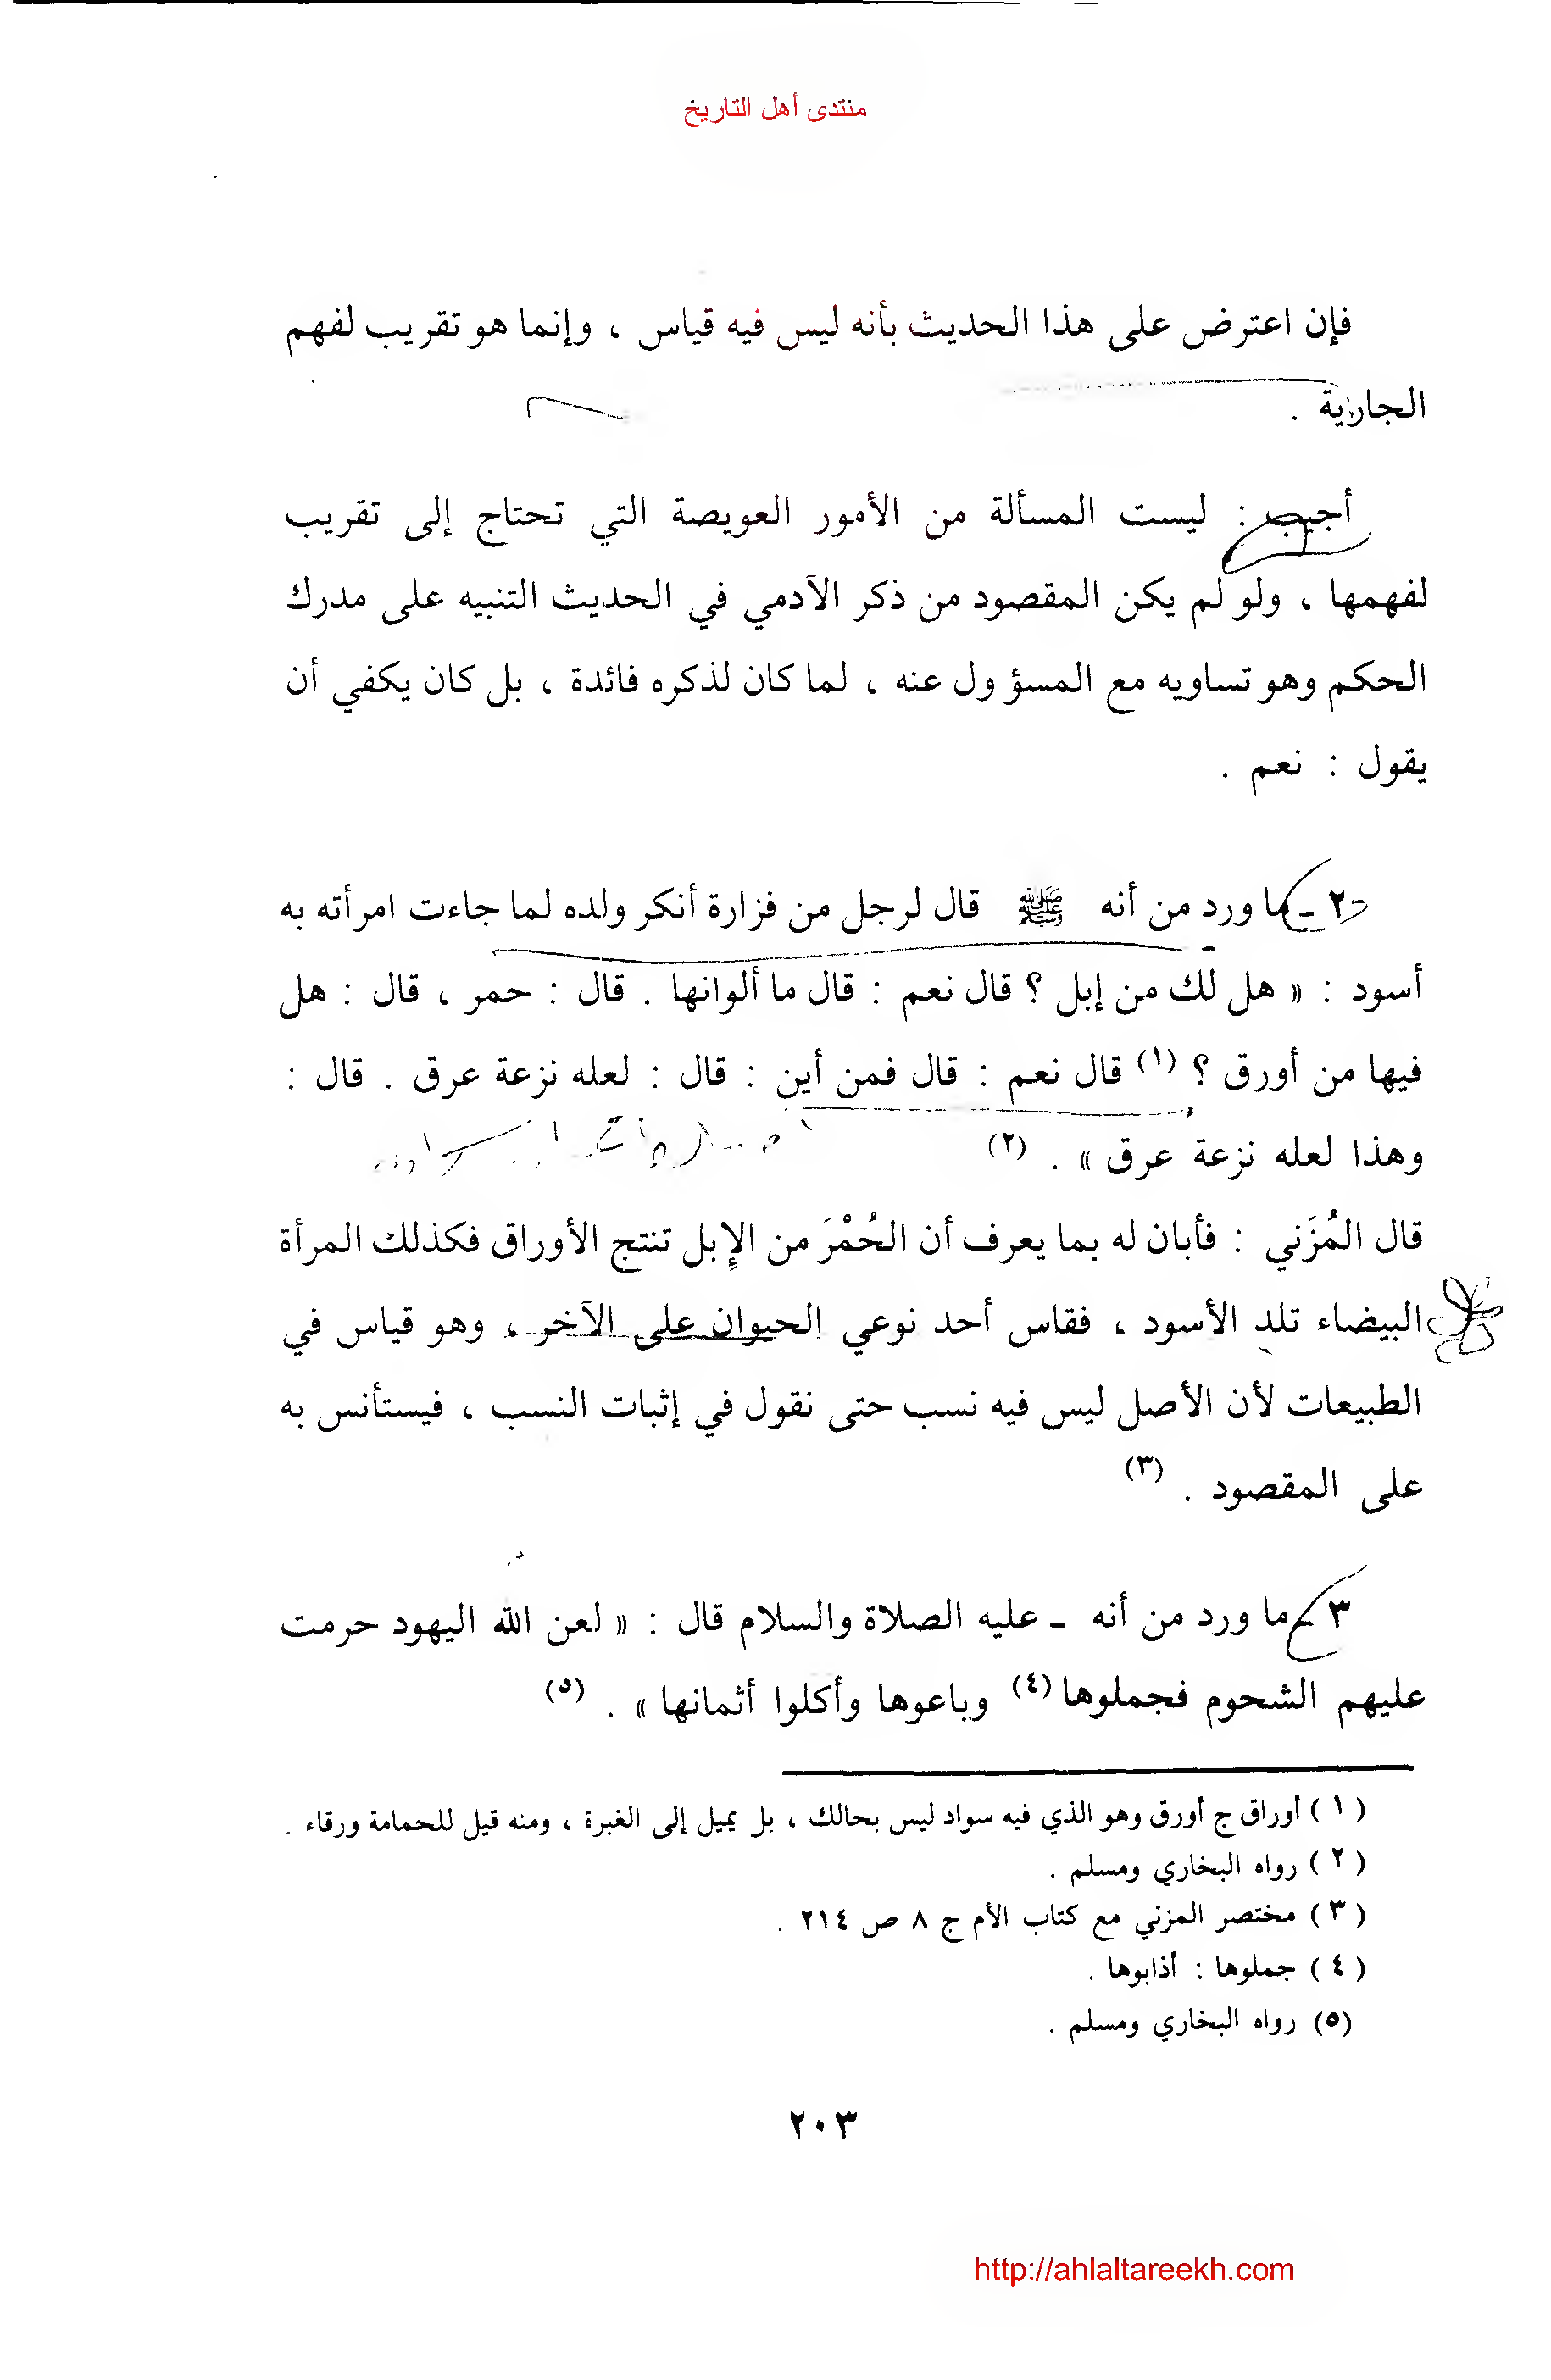 منتدى أهل التاريخ
فإن اعترض على هذا الحديث بأنه ليس فيه قياس ، وإنما هو تقريب لفهم
الجارية .
أجيب : ليست المسألة من الأمور العويصة التي تحتاج إلى تقريب
لفهمها ، ولو لم يكن المقصود من ذكر الآدمي في الحديث التنبيه على مدرك
الحكم وهو تساويه مع المسؤول عنه ، لما كان لذكره فائدة ، بل كان يكفي أن
يقول : نعم .
٢ - ما ورد من أنه ﷺ قال لرجل من فزارة أنكر ولده لما جاءت امرأته به
أسود : « هل لك من إبل ؟ قال نعم : قال ما ألوانها . قال : حمر ، قال : هل
فيها من أورق ؟ (١) قال نعم : قال فمن أين : قال : لعله نزعة عرق . قال :
وهذا لعله نزعة عرق » . (٢)
قال المُزَني : فأبان له بما يعرف أن الحُمْرَ من الإبل تنتج الأوراق فكذلك المرأة
البيضاء تلد الأسود ، فقاس أحد نوعي الحيوان على الآخر ، وهو قياس في
الطبيعات لأن الأصل ليس فيه نسب حتى نقول في إثبات النسب ، فيستأنس به
على المقصود . (٣)
٣ - ما ورد من أنه - عليه الصلاة والسلام قال : « لعن الله اليهود حرمت
عليهم الشحوم فجملوها (٤) وباعوها وأكلوا أثمانها » . (٥)
( ١ ) أوراق ج أورق وهو الذي فيه سواد ليس بحالك ، بل يميل إلى الغبرة ، ومنه قيل للحمامة ورقاء .
( ٢ ) رواه البخاري ومسلم .
( ٣ ) مختصر المزني مع كتاب الأم ج ٨ ص ٢١٤ .
( ٤ ) جملوها : أذابوها .
(٥) رواه البخاري ومسلم .
٢٠٣
http://ahlaltareekh.com